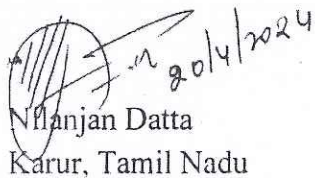 20/4/2024
Nilanjan Datta
Karur, Tamil Nadu